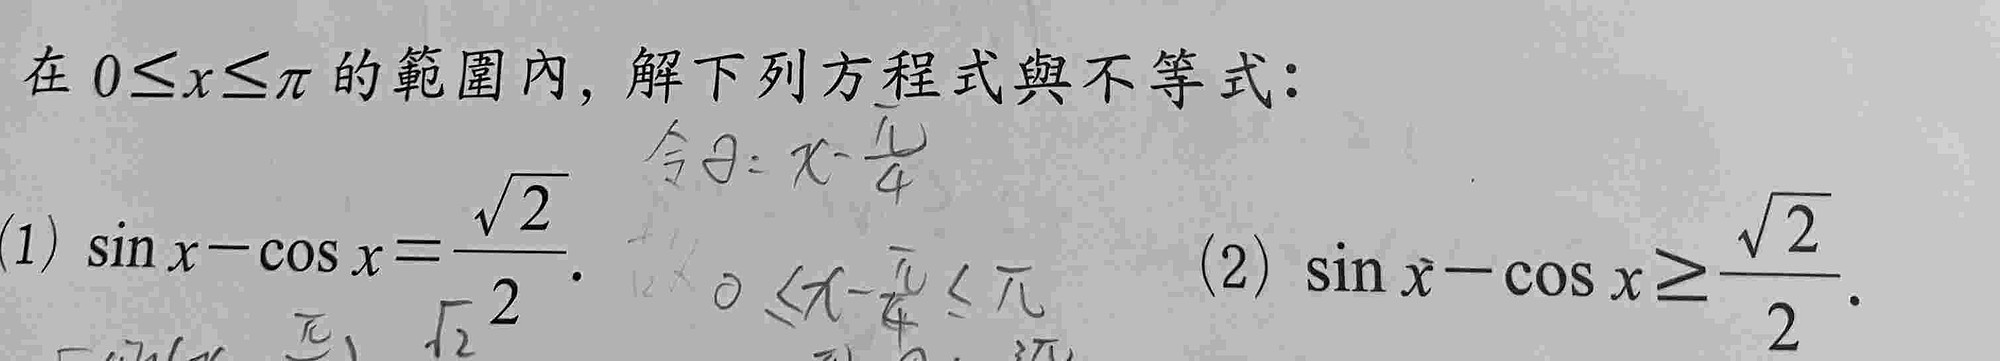 在 0≤x≤π 的範圍內, 解下列方程式與不等式:
令θ= x-π/4
(1) sin x-cos x=√2/2.
0≤x-π/4≤π
(2) sin x-cos x≥√2/2.